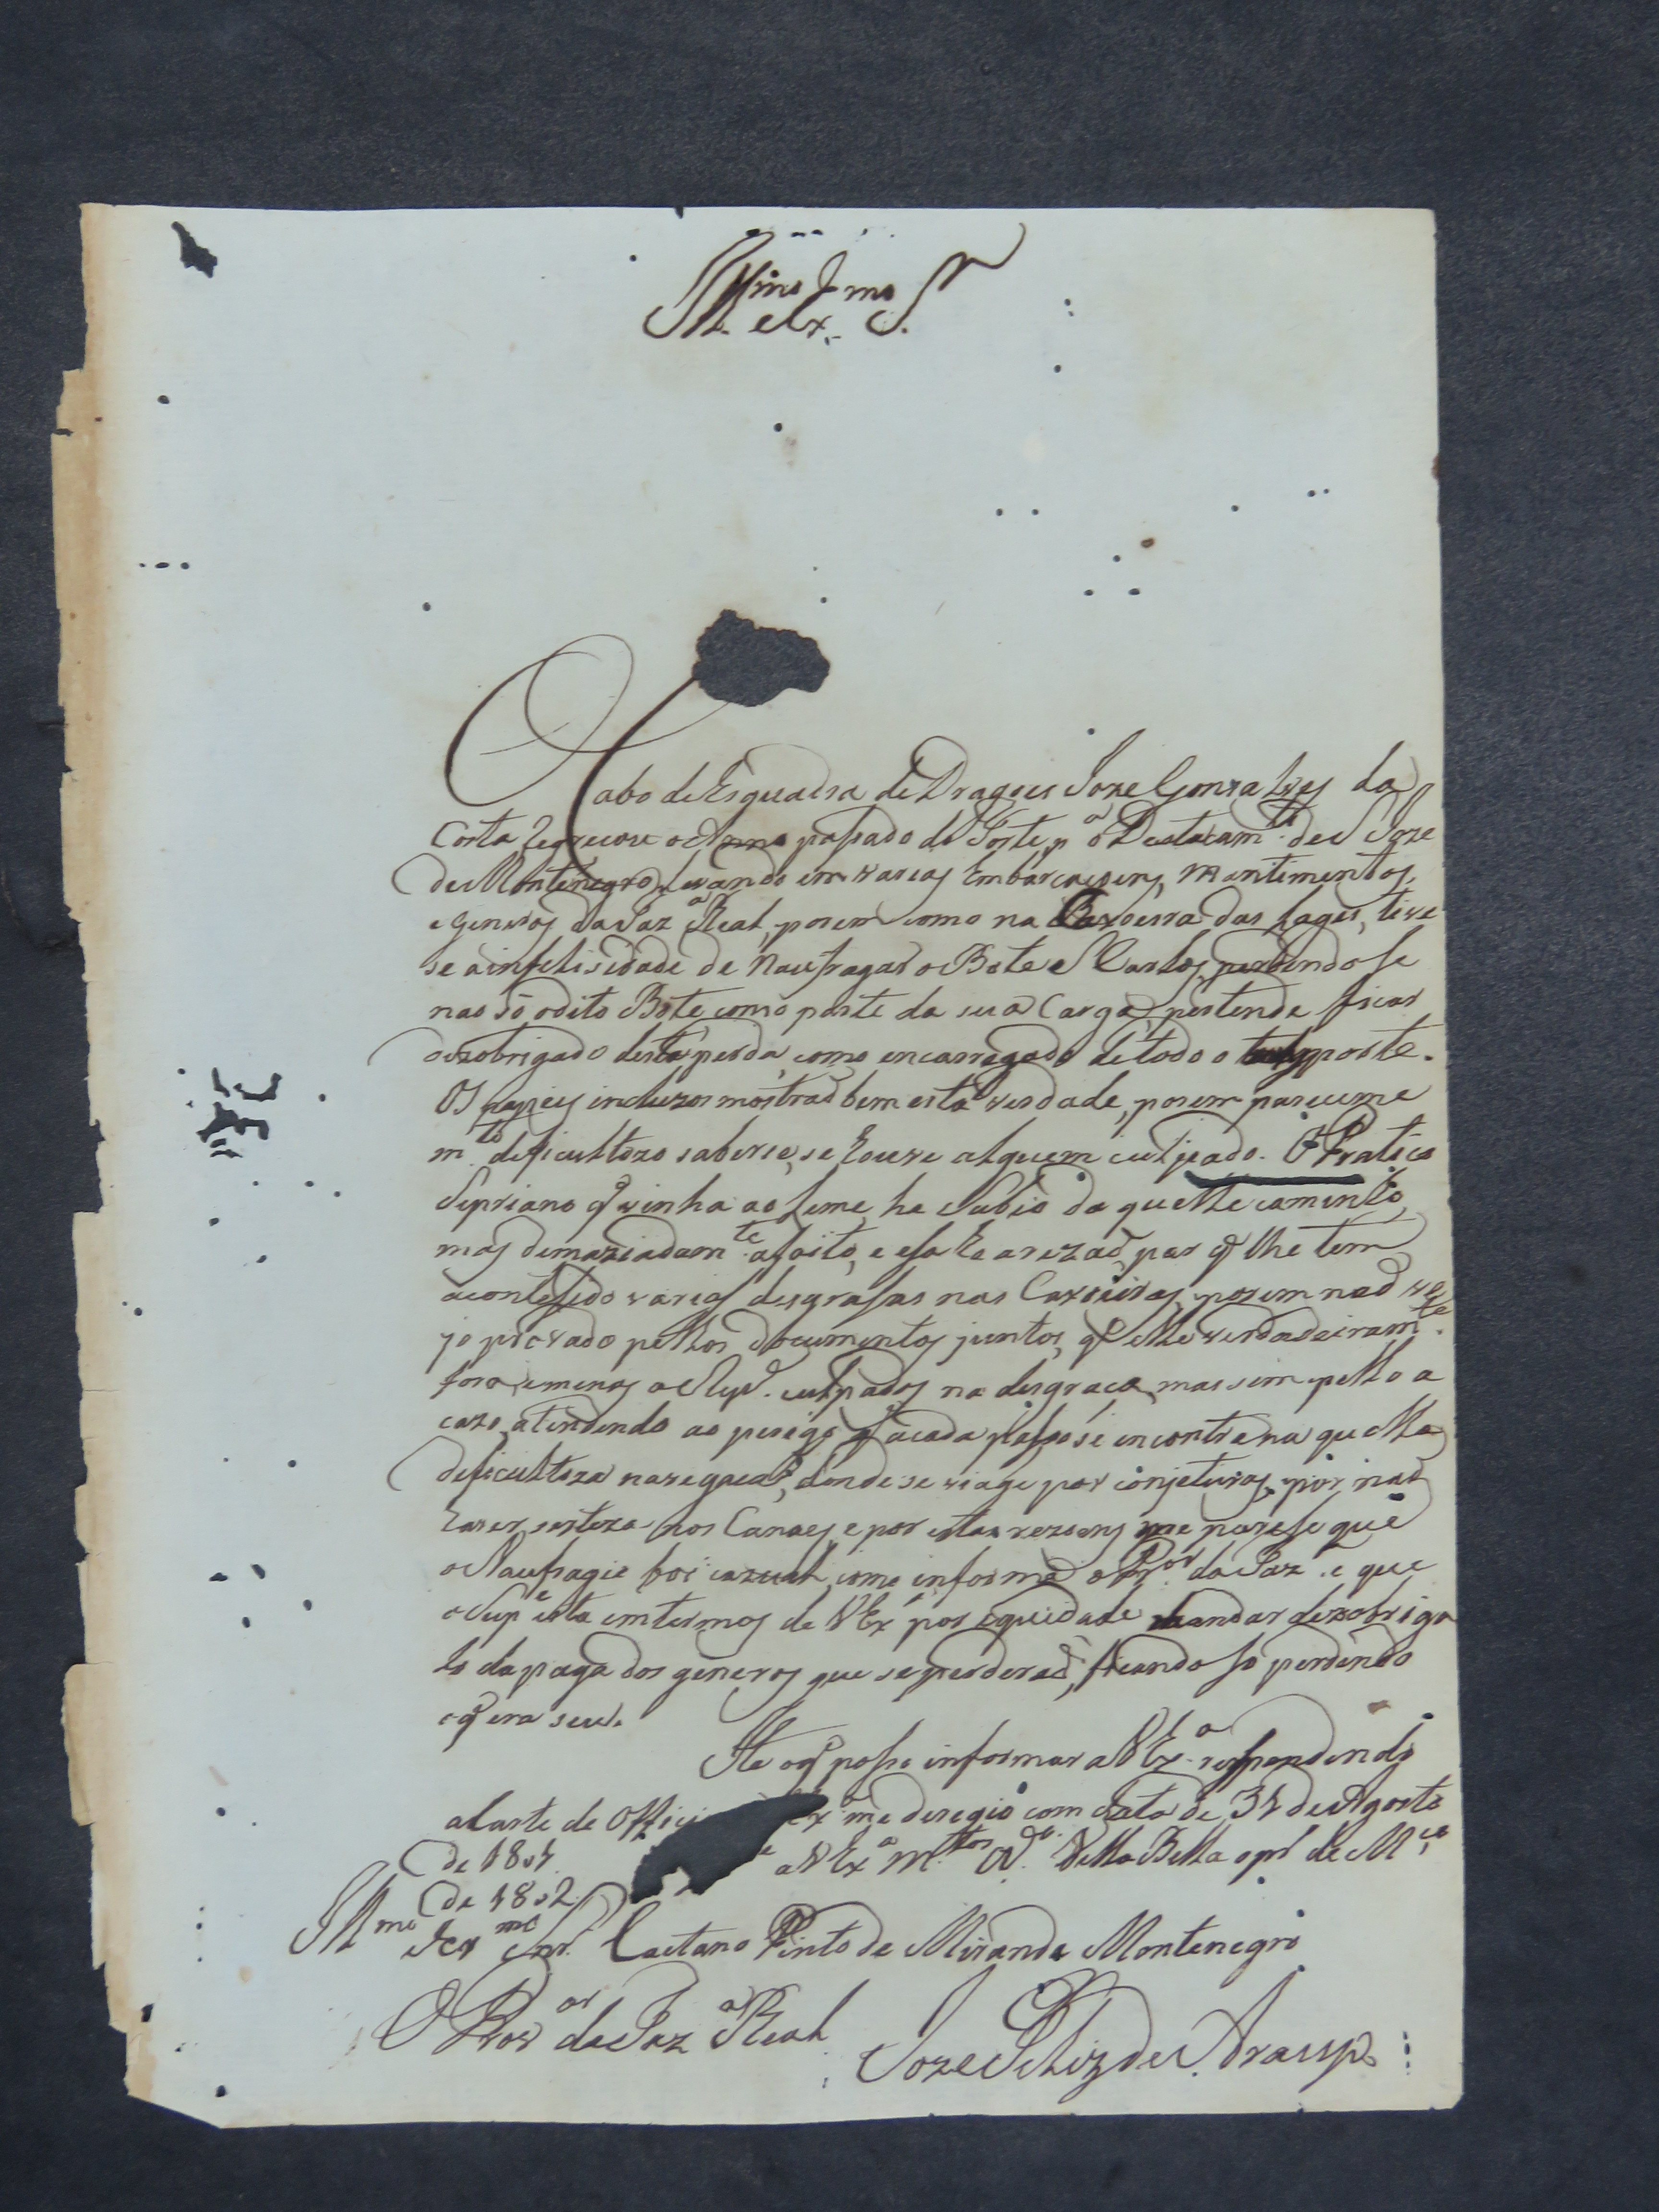 Ill.mo e Ex.mo S.r
Cabo de Esquadra de Dragoes Joze Gonzalves da
Costa regreçou o Anno passado do Forte p.a o Destacam.to de S. Joze
de Montenegro, levando em varias Embarcaçoens, mantimentos,
e generos da Faz.a Real, porem como na Caxoeira das Lages, teve
se a infelisidade de naufragar o Bote S. Carlos, perdendose
nao só o dito Bote como parte da sua Carga, pertende ficar
dezobrigado desta perda, como encarregado de todo o
Os papeis incluzos mostraõ bem esta verdade, porem pareceme
m.to deficultozo saberse, se houve alguem culpado. O Pratico
Sipriano q̃ vinha ao Leme, he sabio da quelle caminho,
mas demaziadam.te afoito, e essa he a rezaõ, par q̃ lhe tem
acontesido varias desgrasas nas Caxoeiras, porem naõ ve
jo provado pellos documentos juntos, q̃ elle verdadeiram.te
fora, e menos o Sup.e culpados na desgraça, mas sim pello a
cazo, atendendo ao perigo q̃ a cada passo se encontra na quella
deficultoza navegaçaõ, donde se viaja por conjeturas, por naõ
haver serteza nos Canaes, e por estas rezoens me parese que
o Naufragio foi cazual, como informa o Pr.or da Faz.a e que
o Sup.e está em termos de V Ex.a por equidade mandar dezobriga
lo da paga dos generos que se perderaõ, ficando só perdendo
o q̃ era seu.
He o q̃ posso informar a V Ex.a respondendo
a Carta de Offici Ex.a me deregio com data de 31 de Agosto
de 1801. a V Ex.a m.tos an.s Villa Bella o pr.o de M.ço
de 1802.
Ill.mo e Ex.mo Snr. Caetano Pinto de Miranda Montenegro
O Prov.or da Faz.a Real
Joze Feliz de Araujo